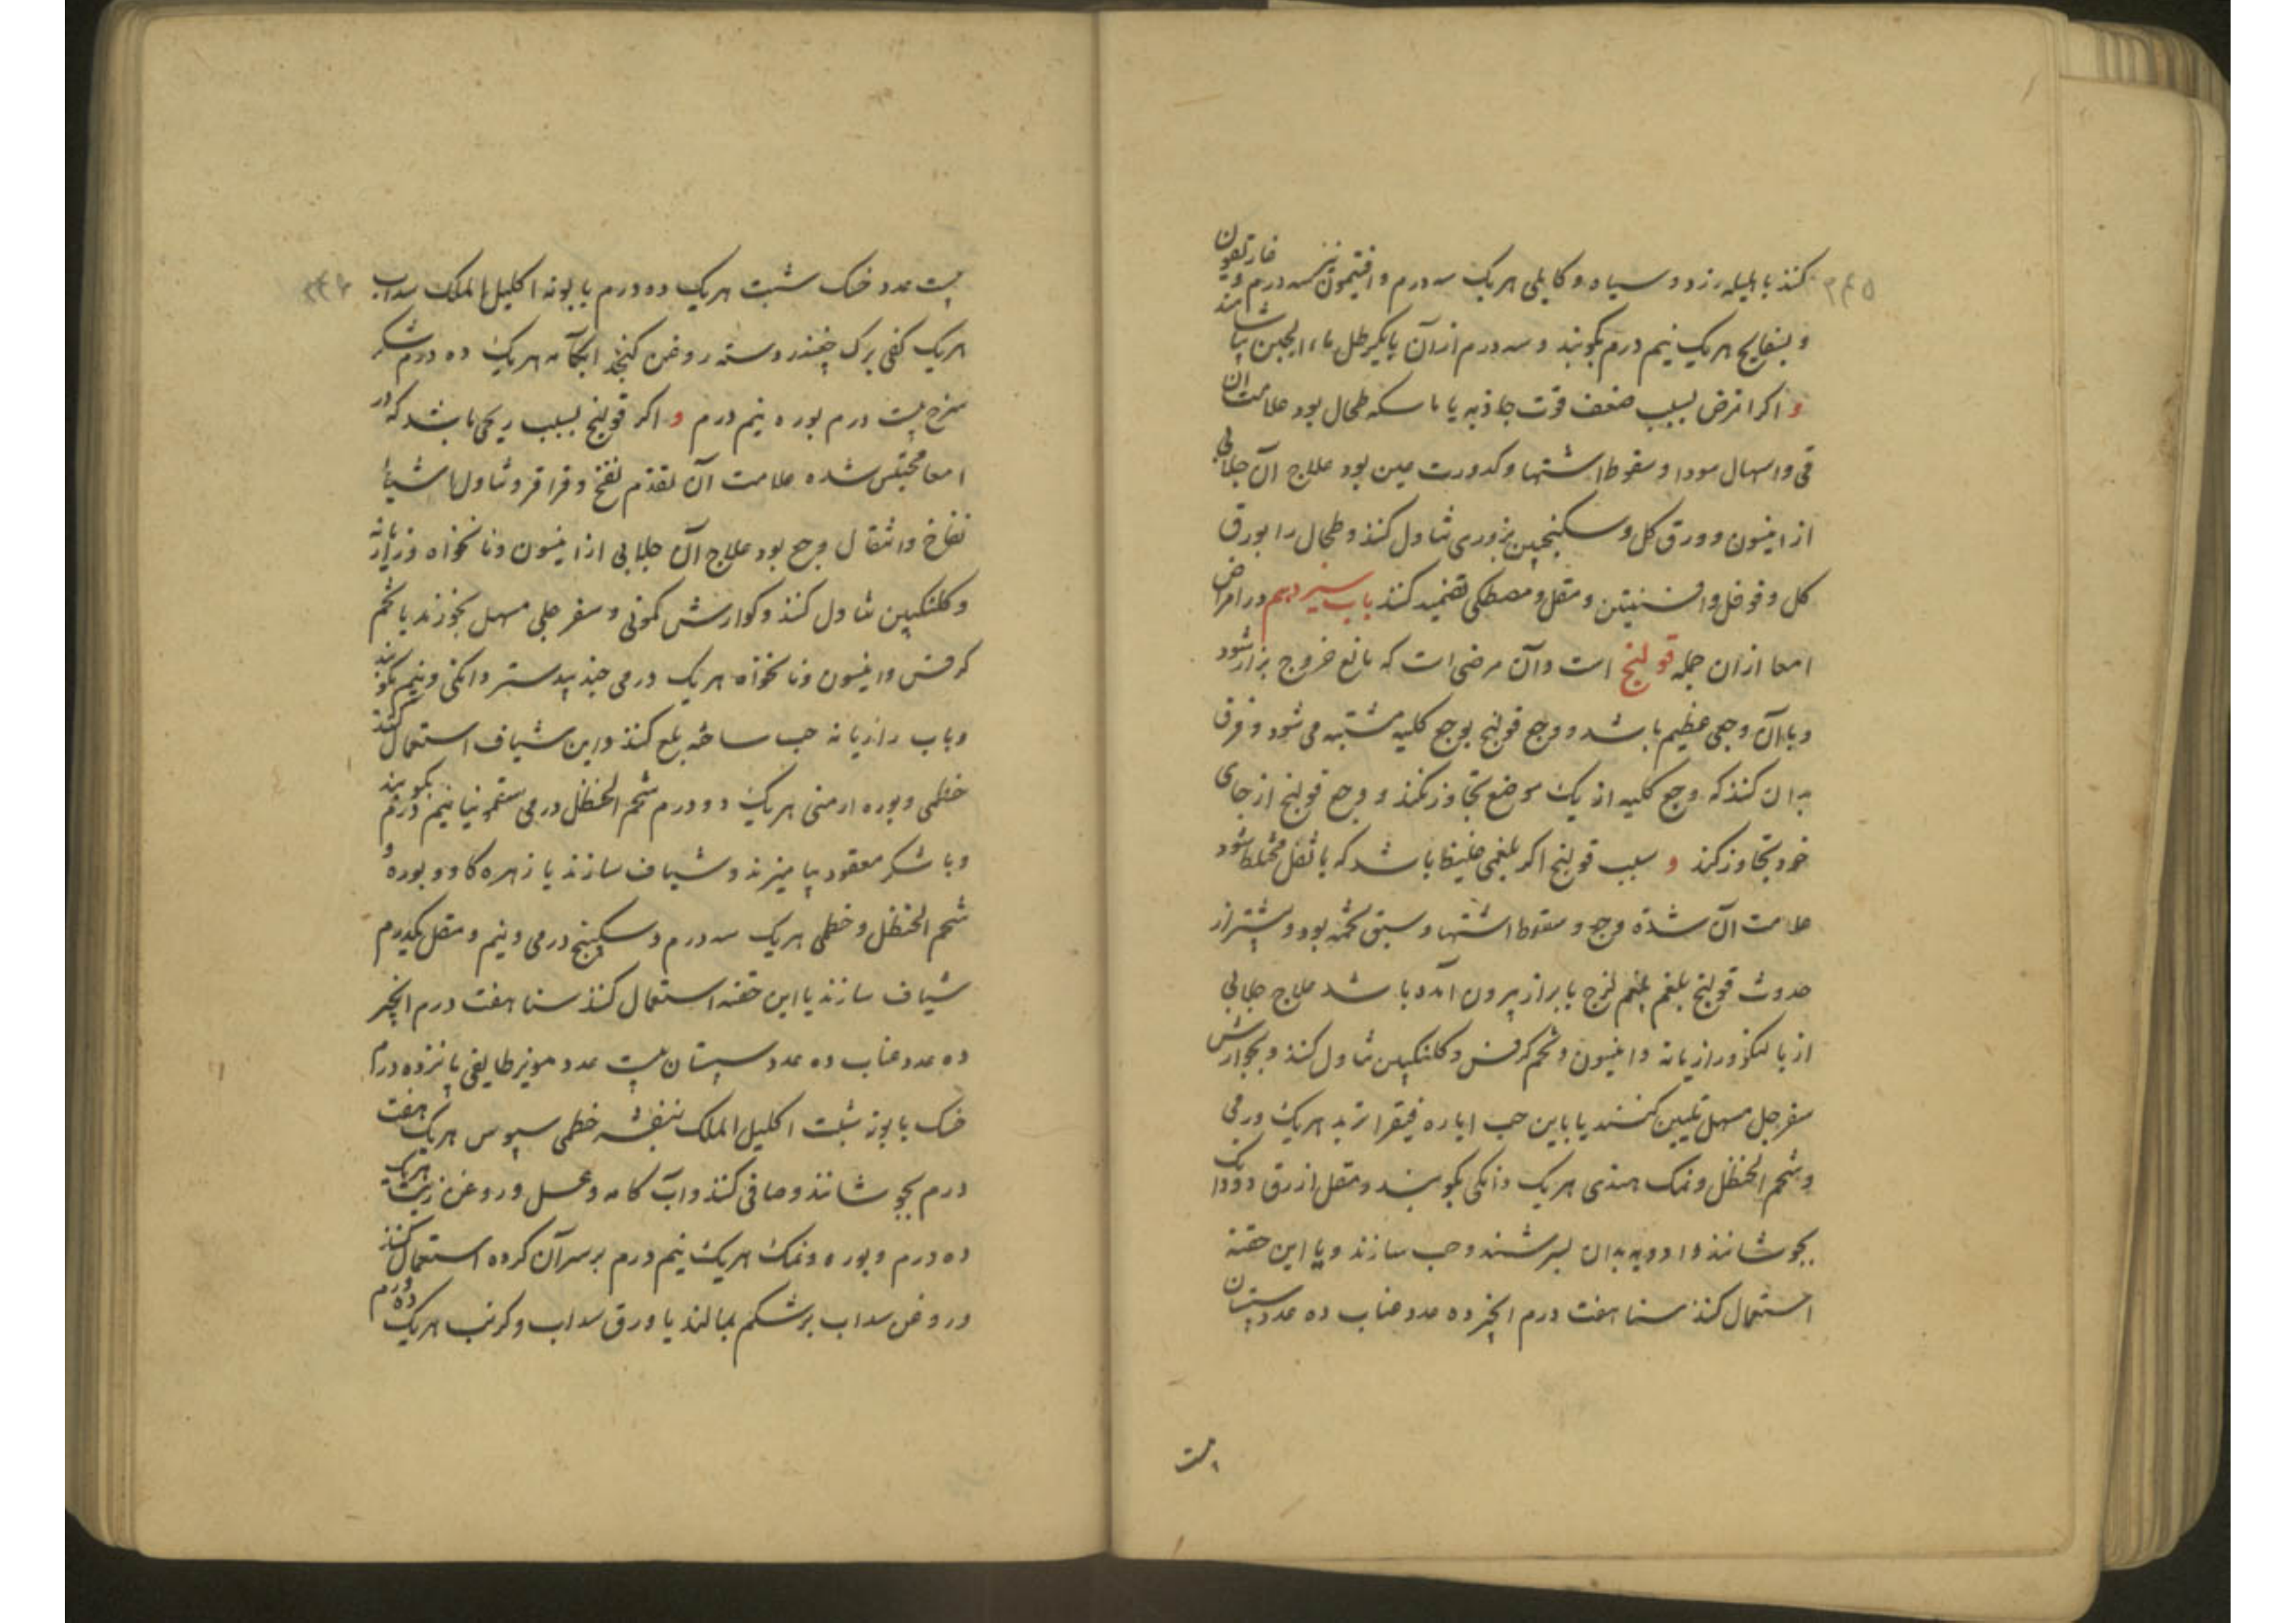 کنند با هلیله زرد و سیاه و کابلی هریک سه درم و افتیمون نیز سه درم و غاریقون
و بسفایج هریک نیم درم بکوبند و سه درم از آن با یکرطل ماء الجبن بیاشامند
و اکر امرض بسبب ضعف قوت جاذبه یا ماسکه طحال بود علامت ان
قی و اسهال سودا و سقوط اشتها و کدورت عین بود علاج آن جلابی
از انیسون و ورق کل و سکنجبین بزوری تناول کنند و طحال را بورق
کل و فوفل و افسنتین و مقل و مصطکی تضمید کنند باب سیزدهم در امراض
امعا از ان جمله قولنج است و آن مرضی است که مانع خروج براز شود
و با آن وجعی عظیم باشد و وجع قولنج بوجع کلیه مشتبه می شود و فرق
بدان کنند که وجع کلیه از یک موضع تجاوز نکند و وجع قولنج از جای
خود تجاوز کند و سبب قولنج اکر بلغمی غلیظ باشد که با ثفل مختلط شود
علامت آن شدة وجع و سقوط اشتها و سبق تخمه بود و پیشتر از
حدوث قولنج بلغم بلغم لزج با براز بیرون آمده باشد علاج جلابی
از بالنکو و رازیانه و انیسون و تخم کرفس و کلنکبین تناول کنند و بجوارش
سفرجل مسهل تلیین کنند یا باین حب ایاره فیقرا تربد هریک درمی
و شحم الحنظل و نمک هندی هریک دانکی بکوبند و مقل ازرق دودانک
بجوشانند و ادویه بدان بسرشند و حب سازند و یا این حقنه
استعمال کنند سنا هفت درم انجیر ده عدد عناب ده عدد سپستان
بیست
۳۴۵
بیست عدد خسک شبت هریک ده درم بابونه اکلیل الملک سداب
هریک کفی برک چغندر دسته روغن کنجد ابکامه هریک ده درم شکر
سرخ بیست درم بوره نیم درم و اکر قولنج بسبب ریحی باشد که در
امعا محتبس شده علامت آن تقدم نفخ و قراقر و تناول اشیاء
نفاخ و انتقال وجع بود علاج آن جلابی از انیسون و نانخواه و رازیانه
و کلنکبین تناول کنند و کوارش کمونی و سفرجلی مسهل بخورند یا تخم
کرفس و انیسون و نانخواه هریک درمی جندبیدستر دانکی و نیم بکوبند
و باب رازیانه حب ساخته بلع کنند و این شیاف استعمال کنند
خطمی و بوره ارمنی هریک دو درم شحم الحنظل درمی سقمونیا نیم درم بکوبند
و با شکر معقود بیامیزند و شیاف سازند یا زهره کاو و بوره و
شحم الحنظل و خطمی هریک سه درم و سکبینج درمی و نیم و مقل یکدرم
شیاف سازند یا این حقنه استعمال کنند سنا هفت درم انجیر
ده عدد عناب ده عدد سپستان بیست عدد مویز طایفی پانزده درم
خسک بابونه شبت اکلیل الملک بنفشه خطمی سپوس هریک هفت
درم بجوشانند و صافی کنند و آب کامه و عسل و روغن زیت هریک
ده درم و بوره و نمک هریک نیم درم بر سر آن کرده استعمال کنند
و روغن سداب بر شکم بمالند یا ورق سداب و کرنب هریک ده درم